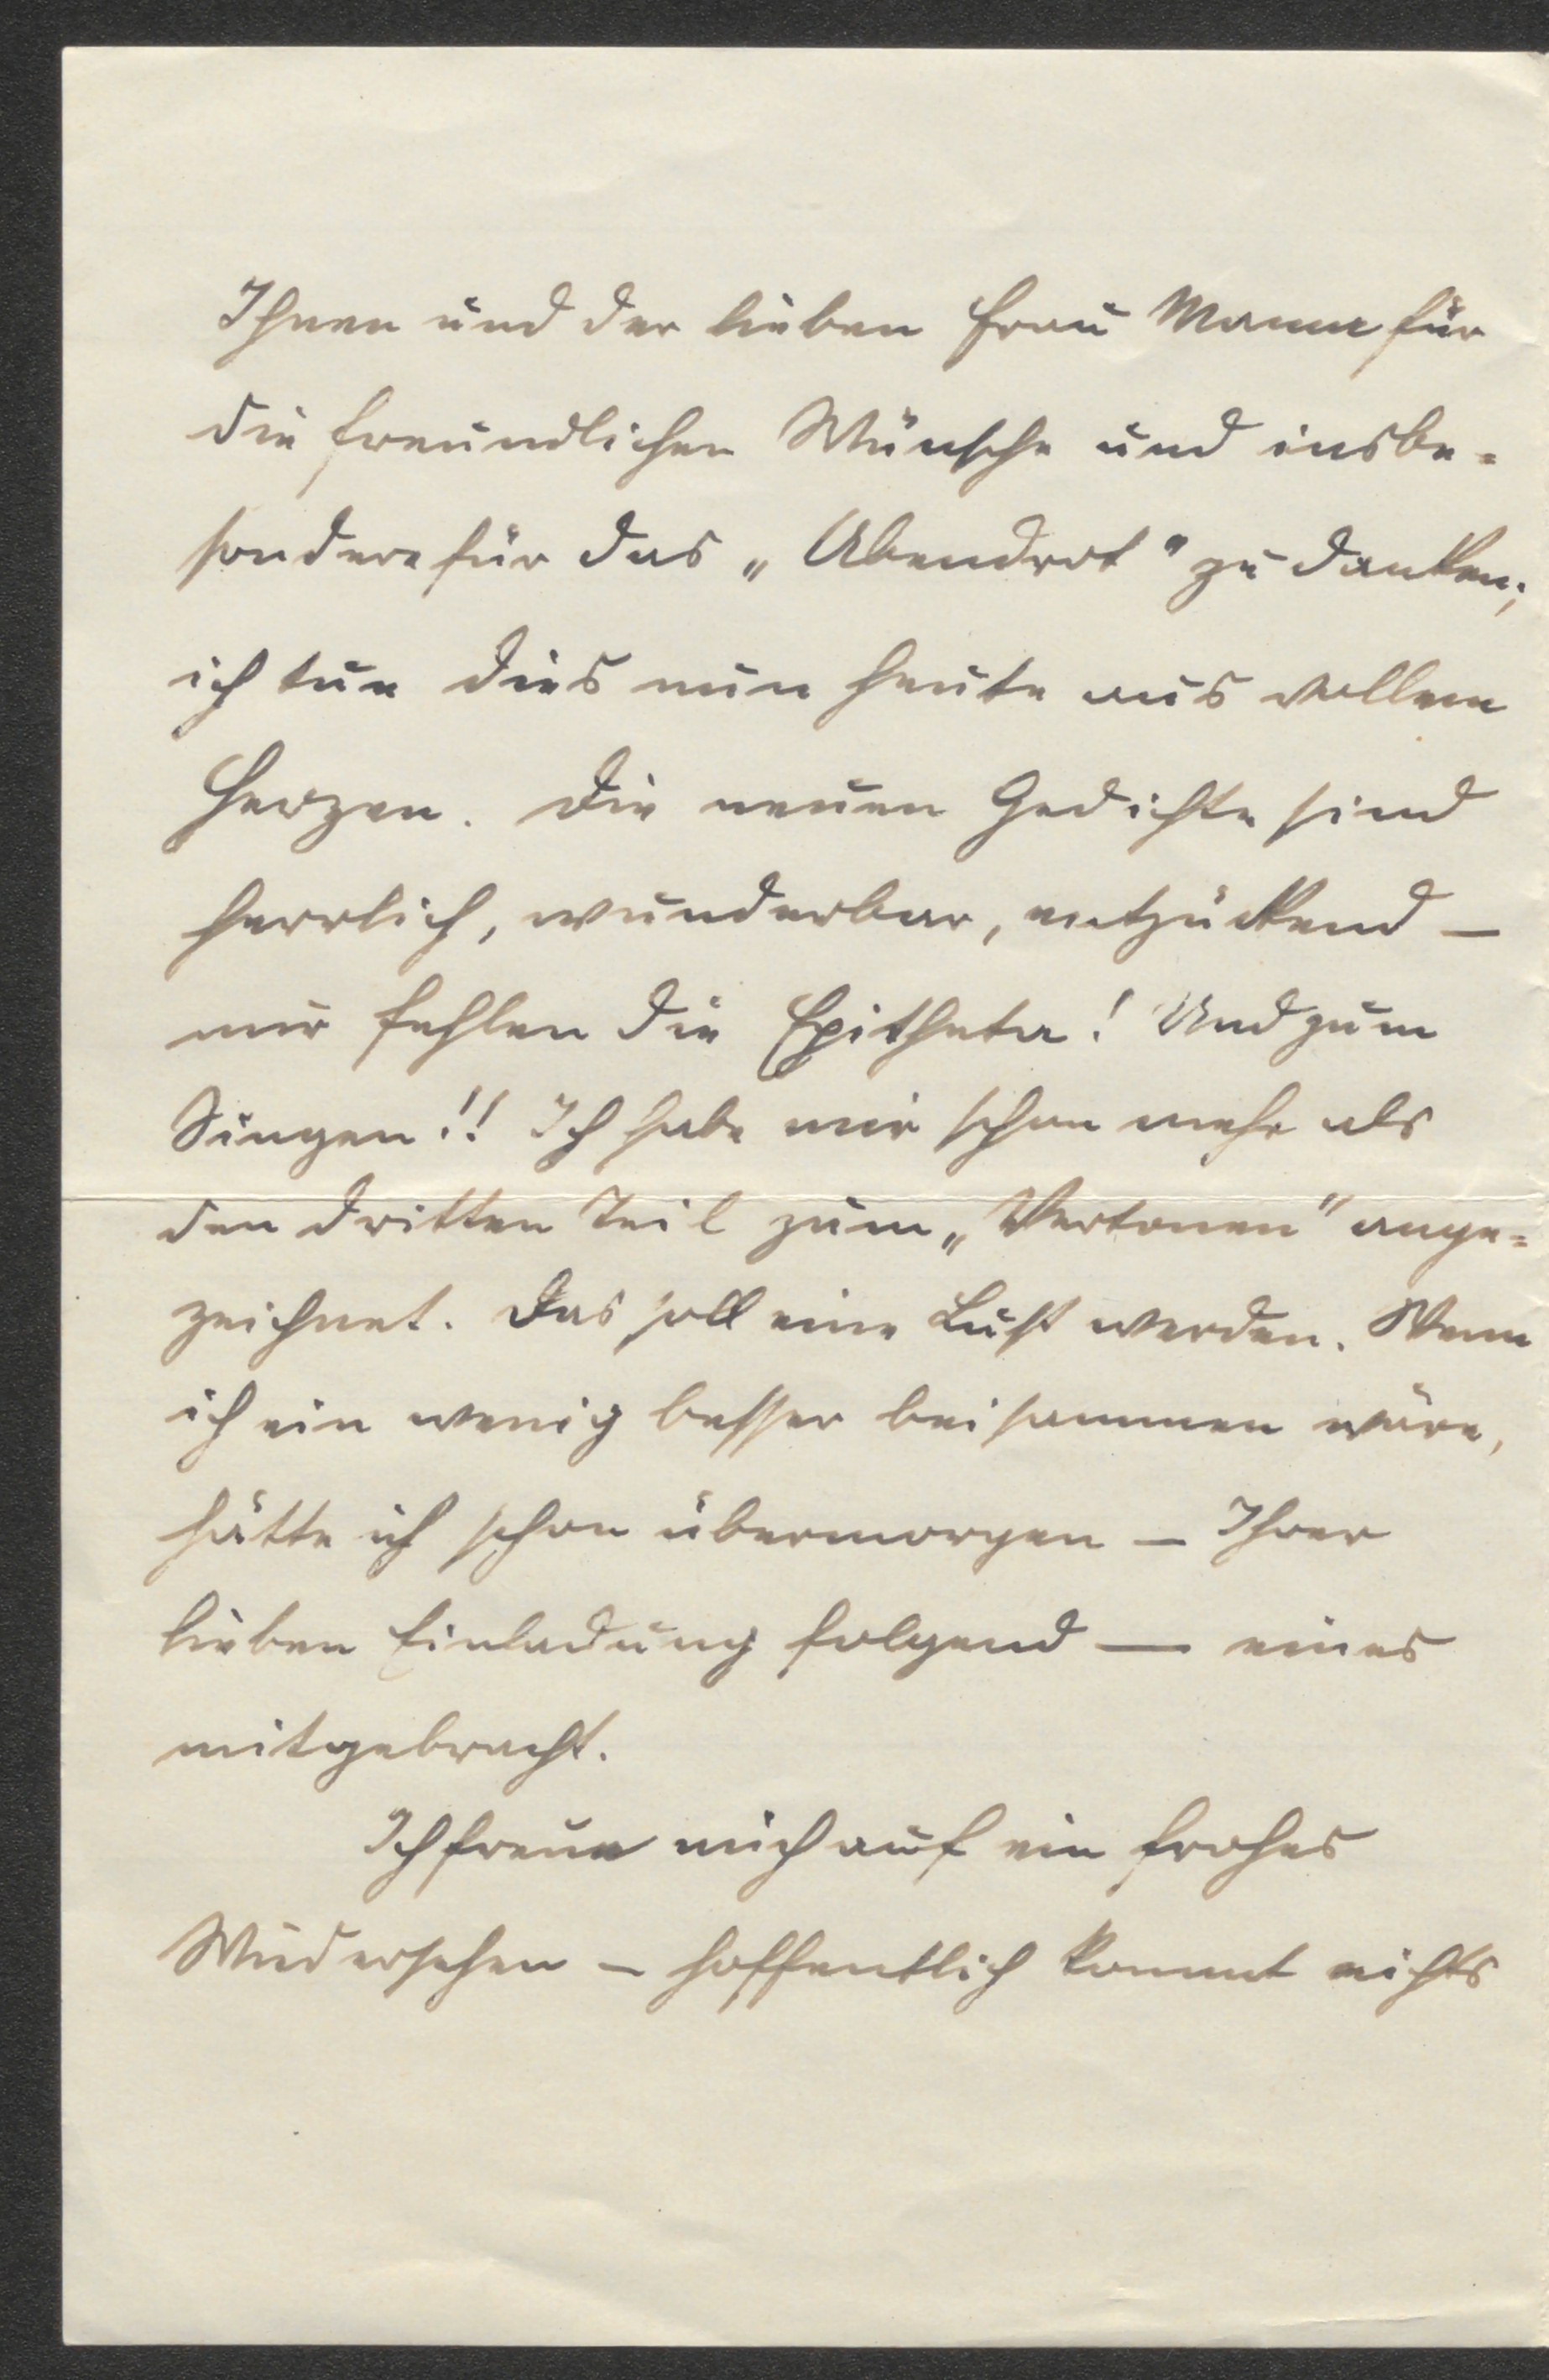 Ihnen und der lieben Frau Mama für
die freundlichen Wünsche und insbe-
sondere für das „Abendrot" zu danken;
ich tue dies nun heute aus vollem
Herzen. Die neuen Gedichte sind
herrlich, wunderbar, entzückend –
mir fehlen die Epitheta! Und zum
Singen!! Ich habe mir schon mehr als
den dritten Teil zum „Vertonen" ange-
zeichnet. Das soll eine Lust werden. Wenn
ich ein wenig besser beisammen wäre,
hätte ich schon übermorgen – Ihrer
lieben Einladung folgend — eines
mitgebracht.
Ich freue mich auf ein frohes
Wiedersehen – hoffentlich kommt nichts